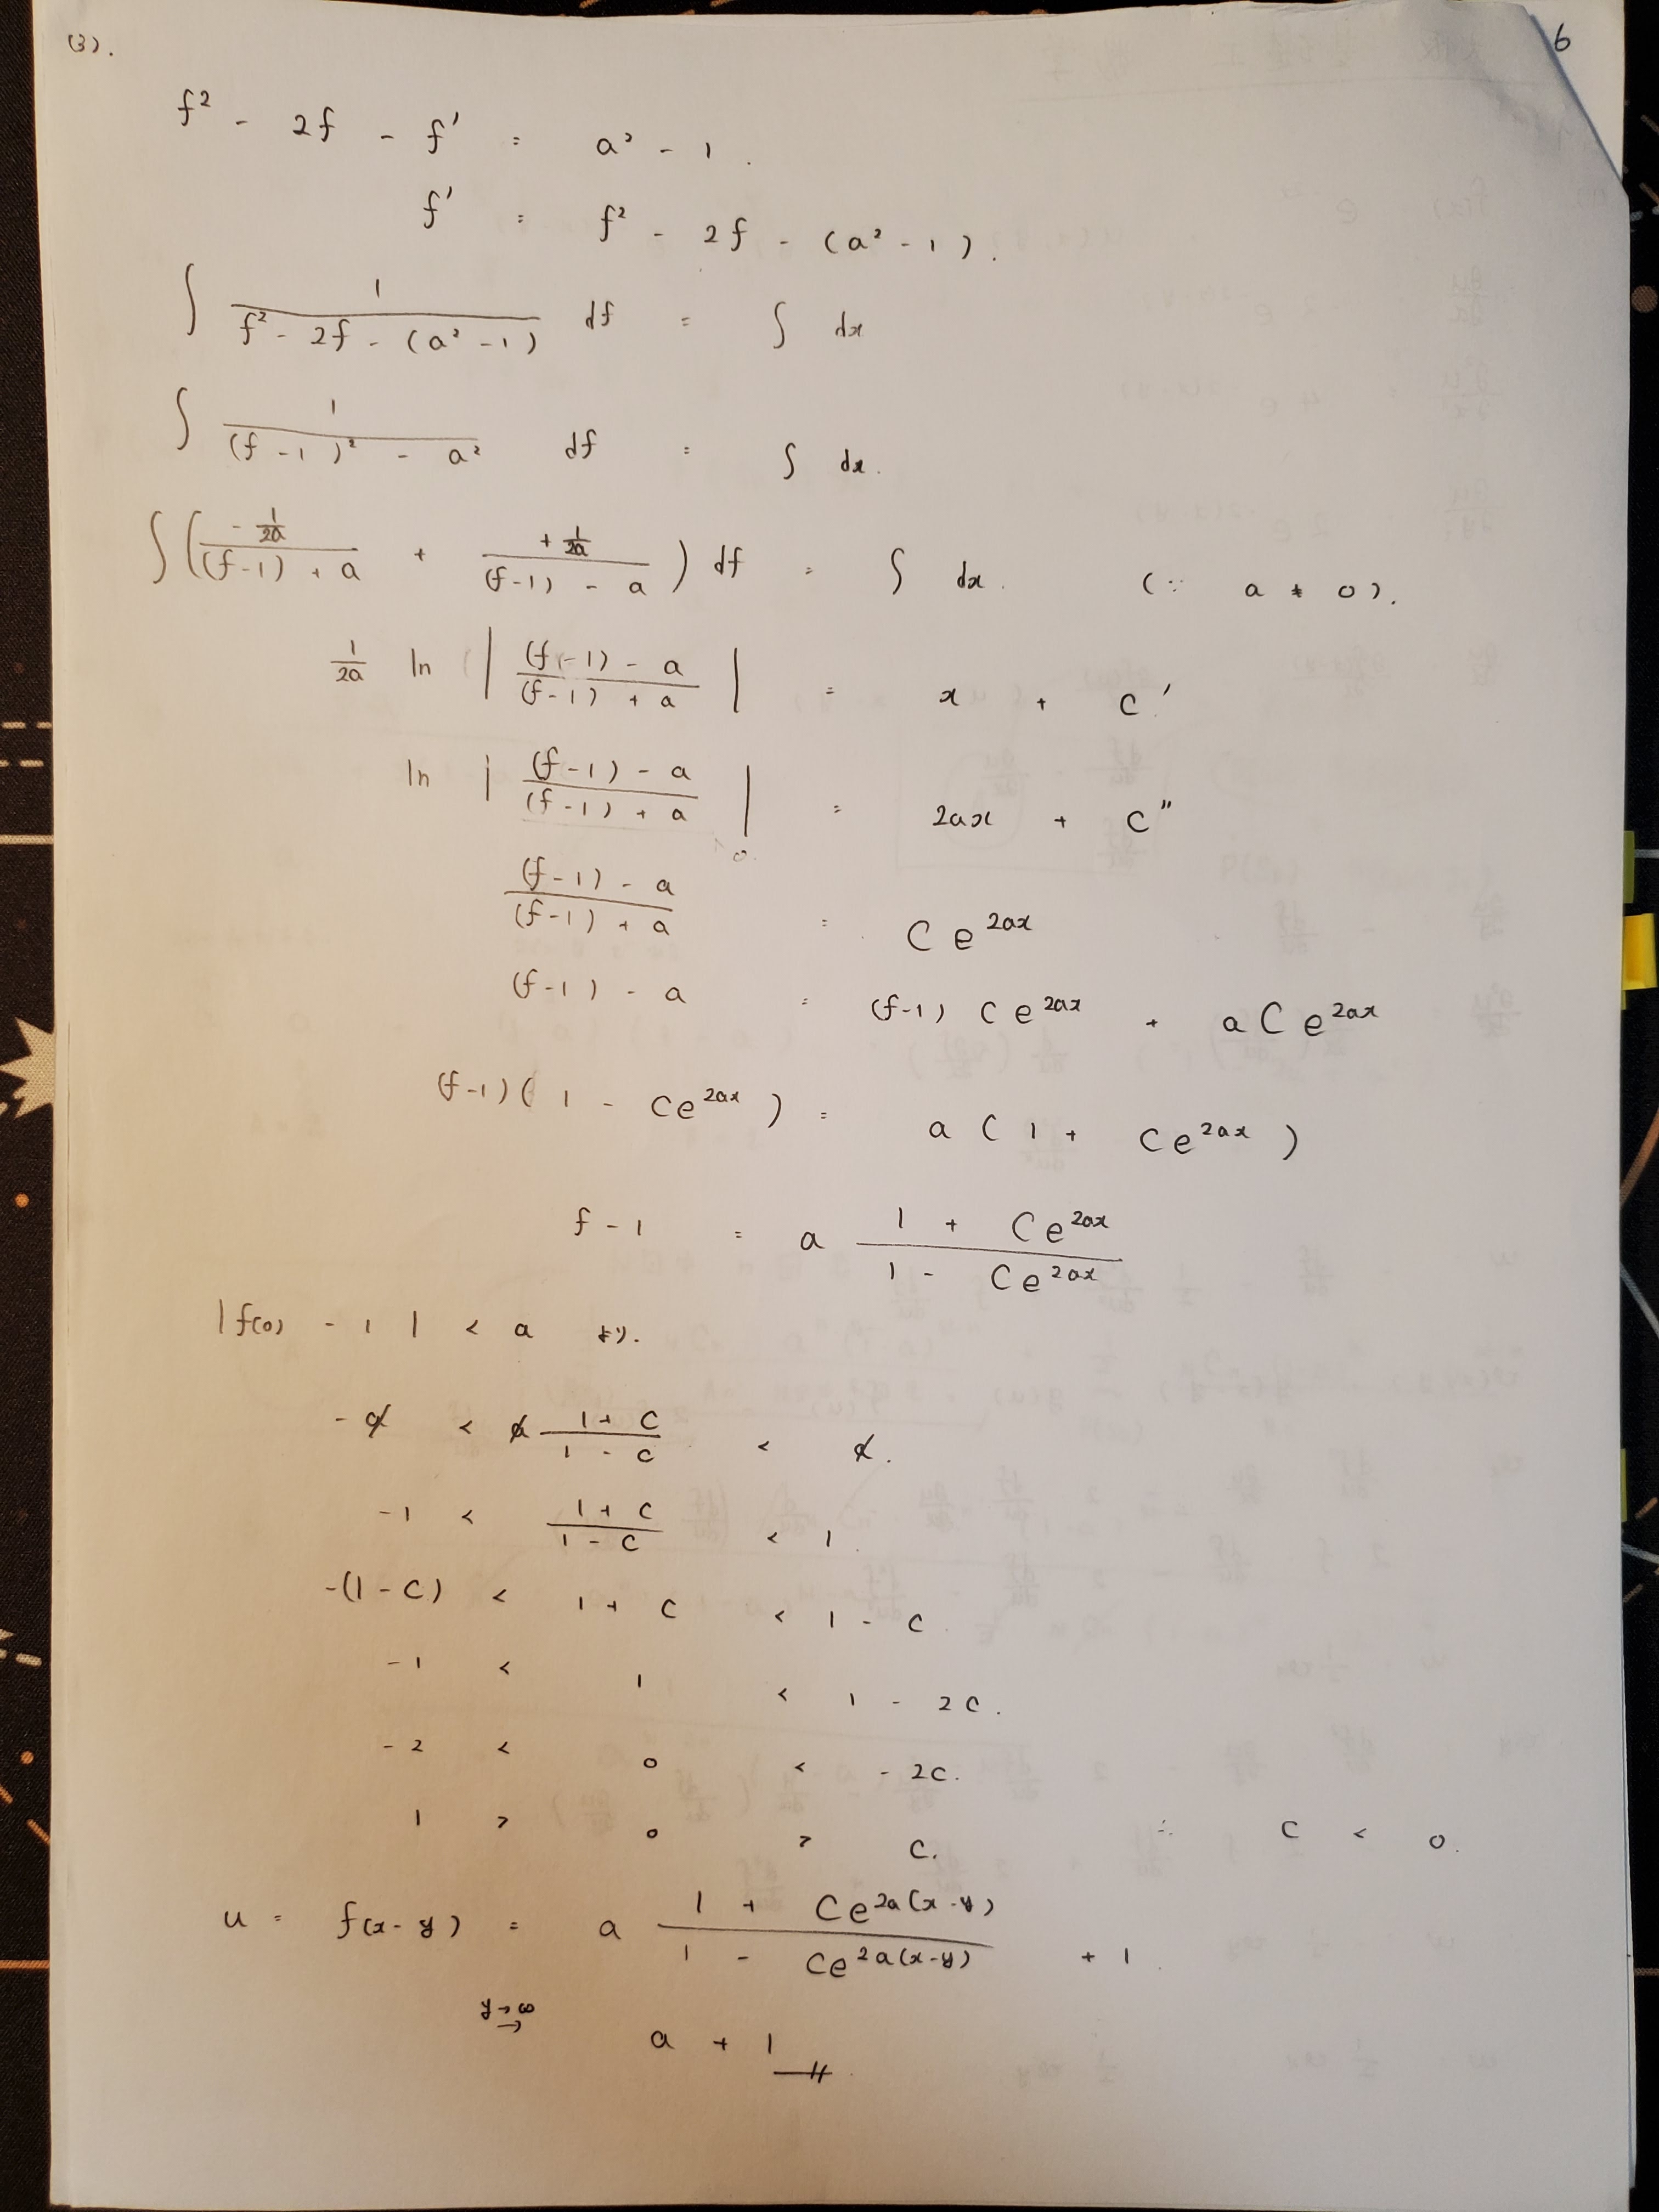 (3). 6
f² - 2f - f' = a² - 1.
f' = f² - 2f - (a² - 1).
∫ 1/(f² - 2f - (a² - 1)) df = ∫ dx
∫ 1/((f - 1)² - a²) df = ∫ dx.
∫ ( (-1/2a)/((f-1) + a) + (+1/2a)/((f-1) - a) ) df = ∫ dx. (∵ a ≠ 0).
1/2a ln | ((f-1) - a)/((f-1) + a) | = x + C'
ln | ((f-1) - a)/((f-1) + a) | = 2ax + C"
((f-1) - a)/((f-1) + a) = C e^{2ax}
(f-1) - a = (f-1) C e^{2ax} + a C e^{2ax}
(f-1)( 1 - Ce^{2ax} ) = a ( 1 + Ce^{2ax} )
f - 1 = a (1 + Ce^{2ax})/(1 - Ce^{2ax})
|f(0) - 1| < a より.
-a < a (1 + C)/(1 - C) < a.
-1 < (1 + C)/(1 - C) < 1.
-(1 - C) < 1 + C < 1 - C.
-1 < 1 < 1 - 2C.
-2 < 0 < -2C.
1 > 0 > C. ∴ C < 0.
u = f(x-y) = a (1 + Ce^{2a(x-y)})/(1 - Ce^{2a(x-y)}) + 1.
y→∞
→ a + 1